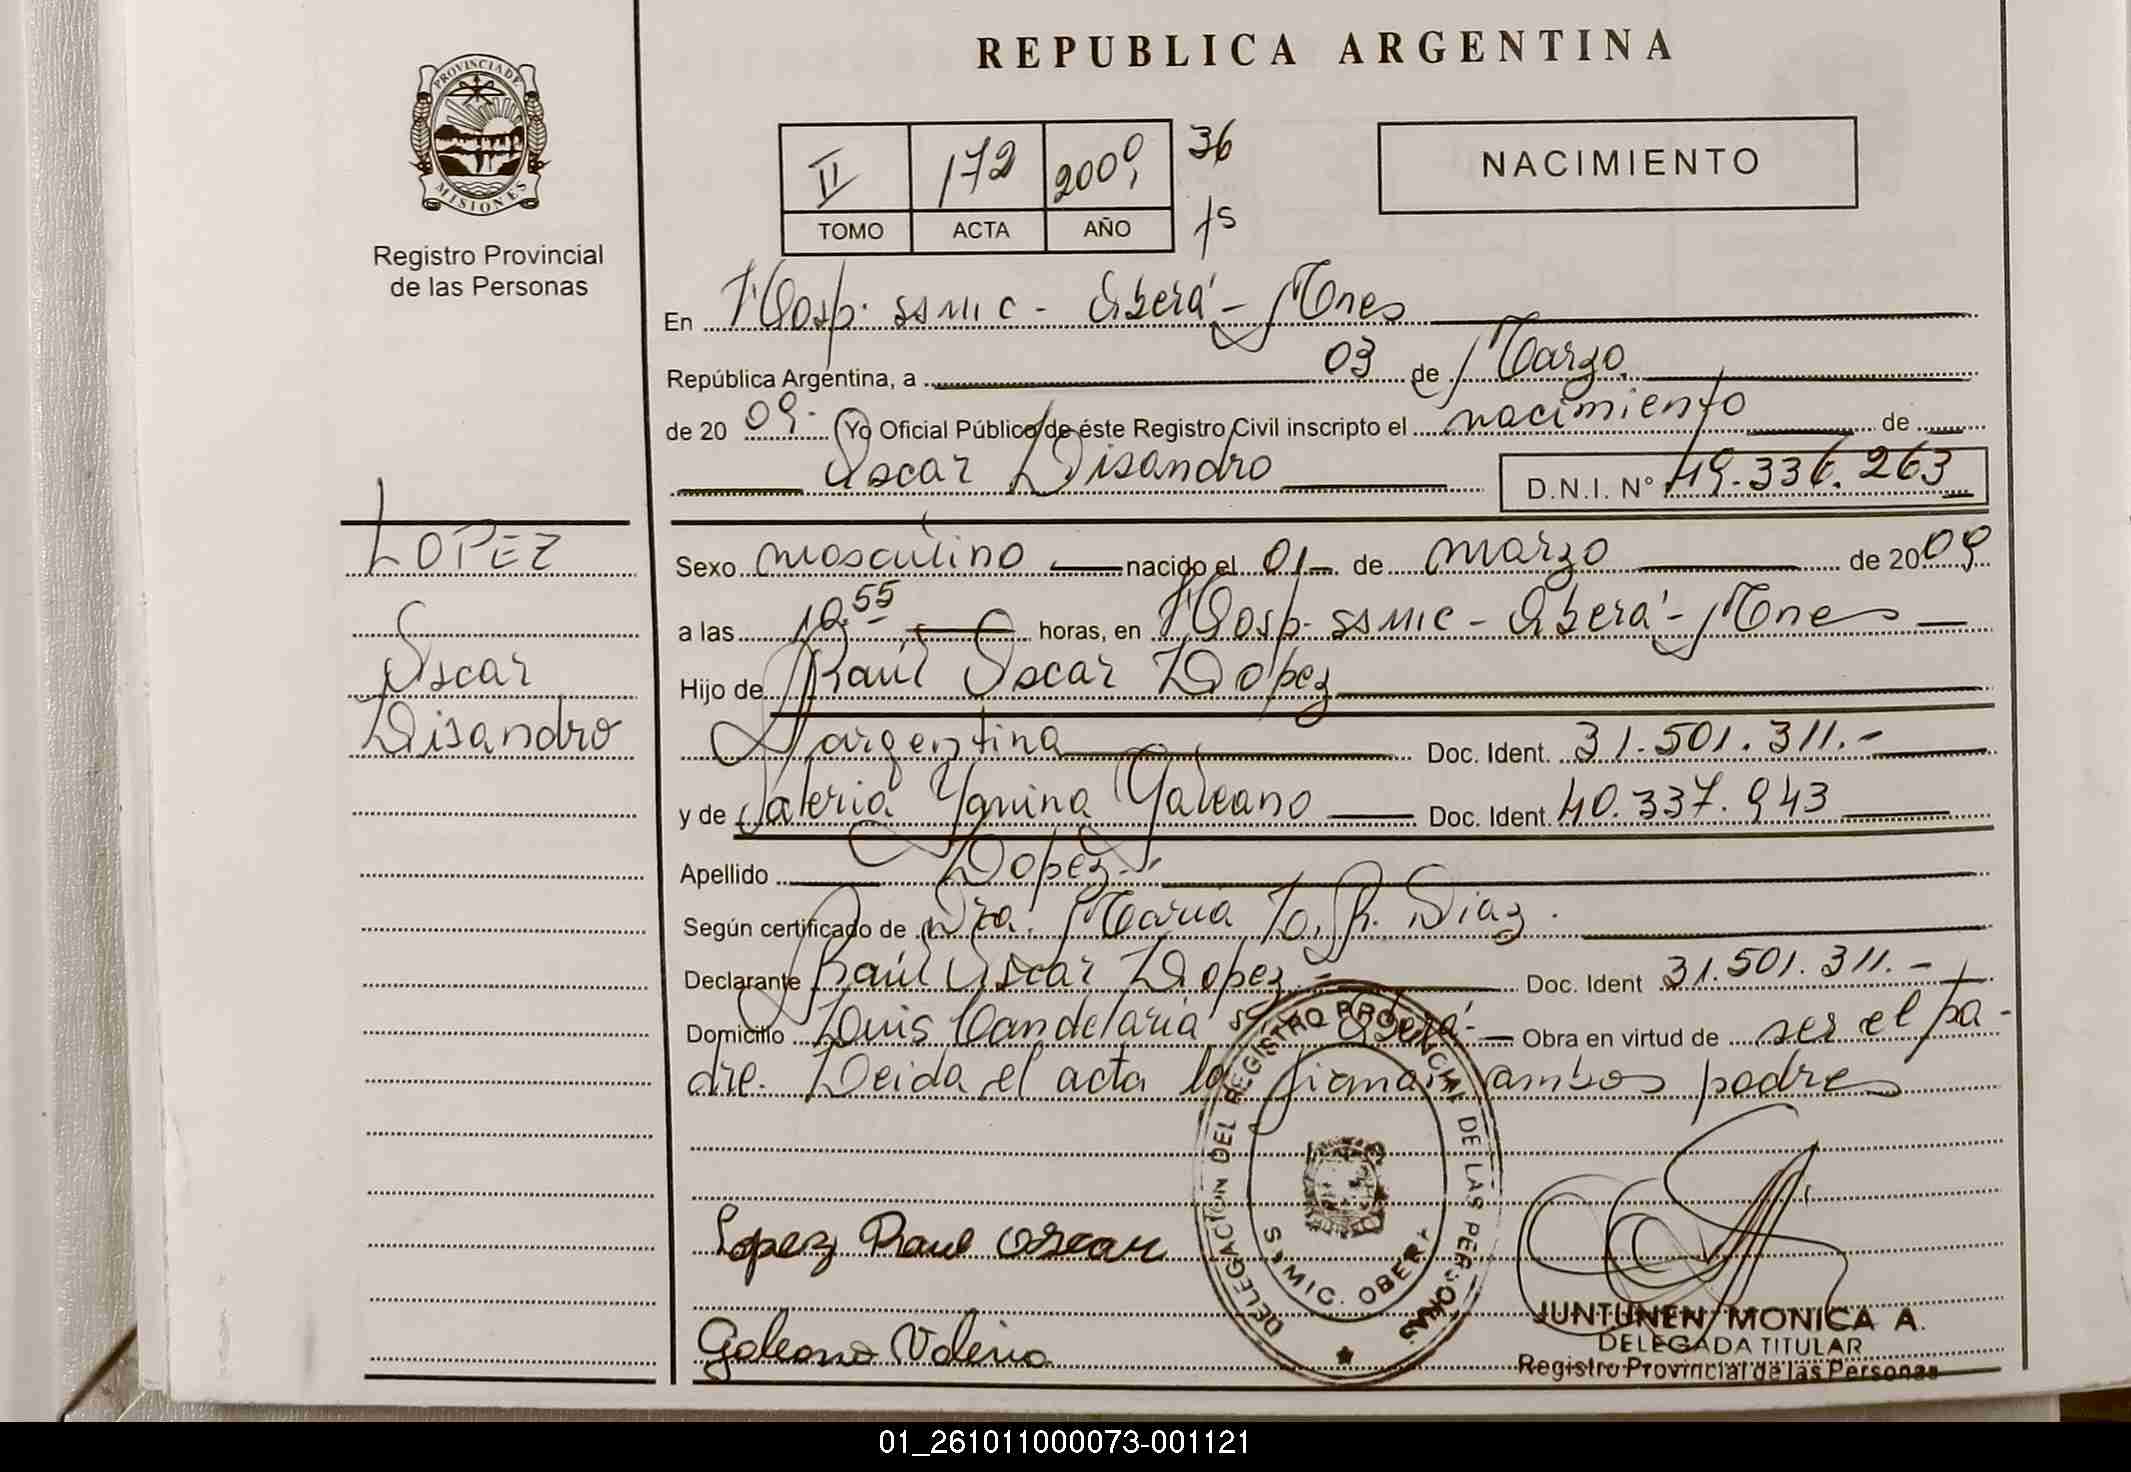 REPUBLICA ARGENTINA
PROVINCIA DE
MISIONES
Registro Provincial
de las Personas
II 172 2009 36
TOMO ACTA AÑO fs
NACIMIENTO
En Hosp. SSMIC - Oberá - Mnes
República Argentina, a 03 de Marzo
de 20 09. Yo Oficial Público de éste Registro Civil inscripto el nacimiento de
Oscar Lisandro D.N.I. Nº 49.336.263
LOPEZ
Oscar
Lisandro
Sexo masculino nacido el 01 de marzo de 2009
a las horas, en Hosp. SSMIC - Oberá - Mnes
Hijo de Raúl Oscar Lopez
Argentina Doc. Ident. 31.501.311.-
y de Valeria Yanina Galeano Doc. Ident. 40.337.943
Apellido Lopez.-
Según certificado de Dra. Maria R. Diaz.
Declarante Raúl Oscar Lopez - Doc. Ident 31.501.311.-
Domicilio Luis Candelaria Oberá - Obra en virtud de ser el pa-
dre. Leida el acta la firman ambos padres
Lopez Raul Oscar
Galeano Valeria
DELEGACION DEL REGISTRO PROVINCIAL DE LAS PERSONAS
SSMIC. OBERA
JUNTUNEN MONICA A.
DELEGADA TITULAR
Registro Provincial de las Personas
01_261011000073-001121